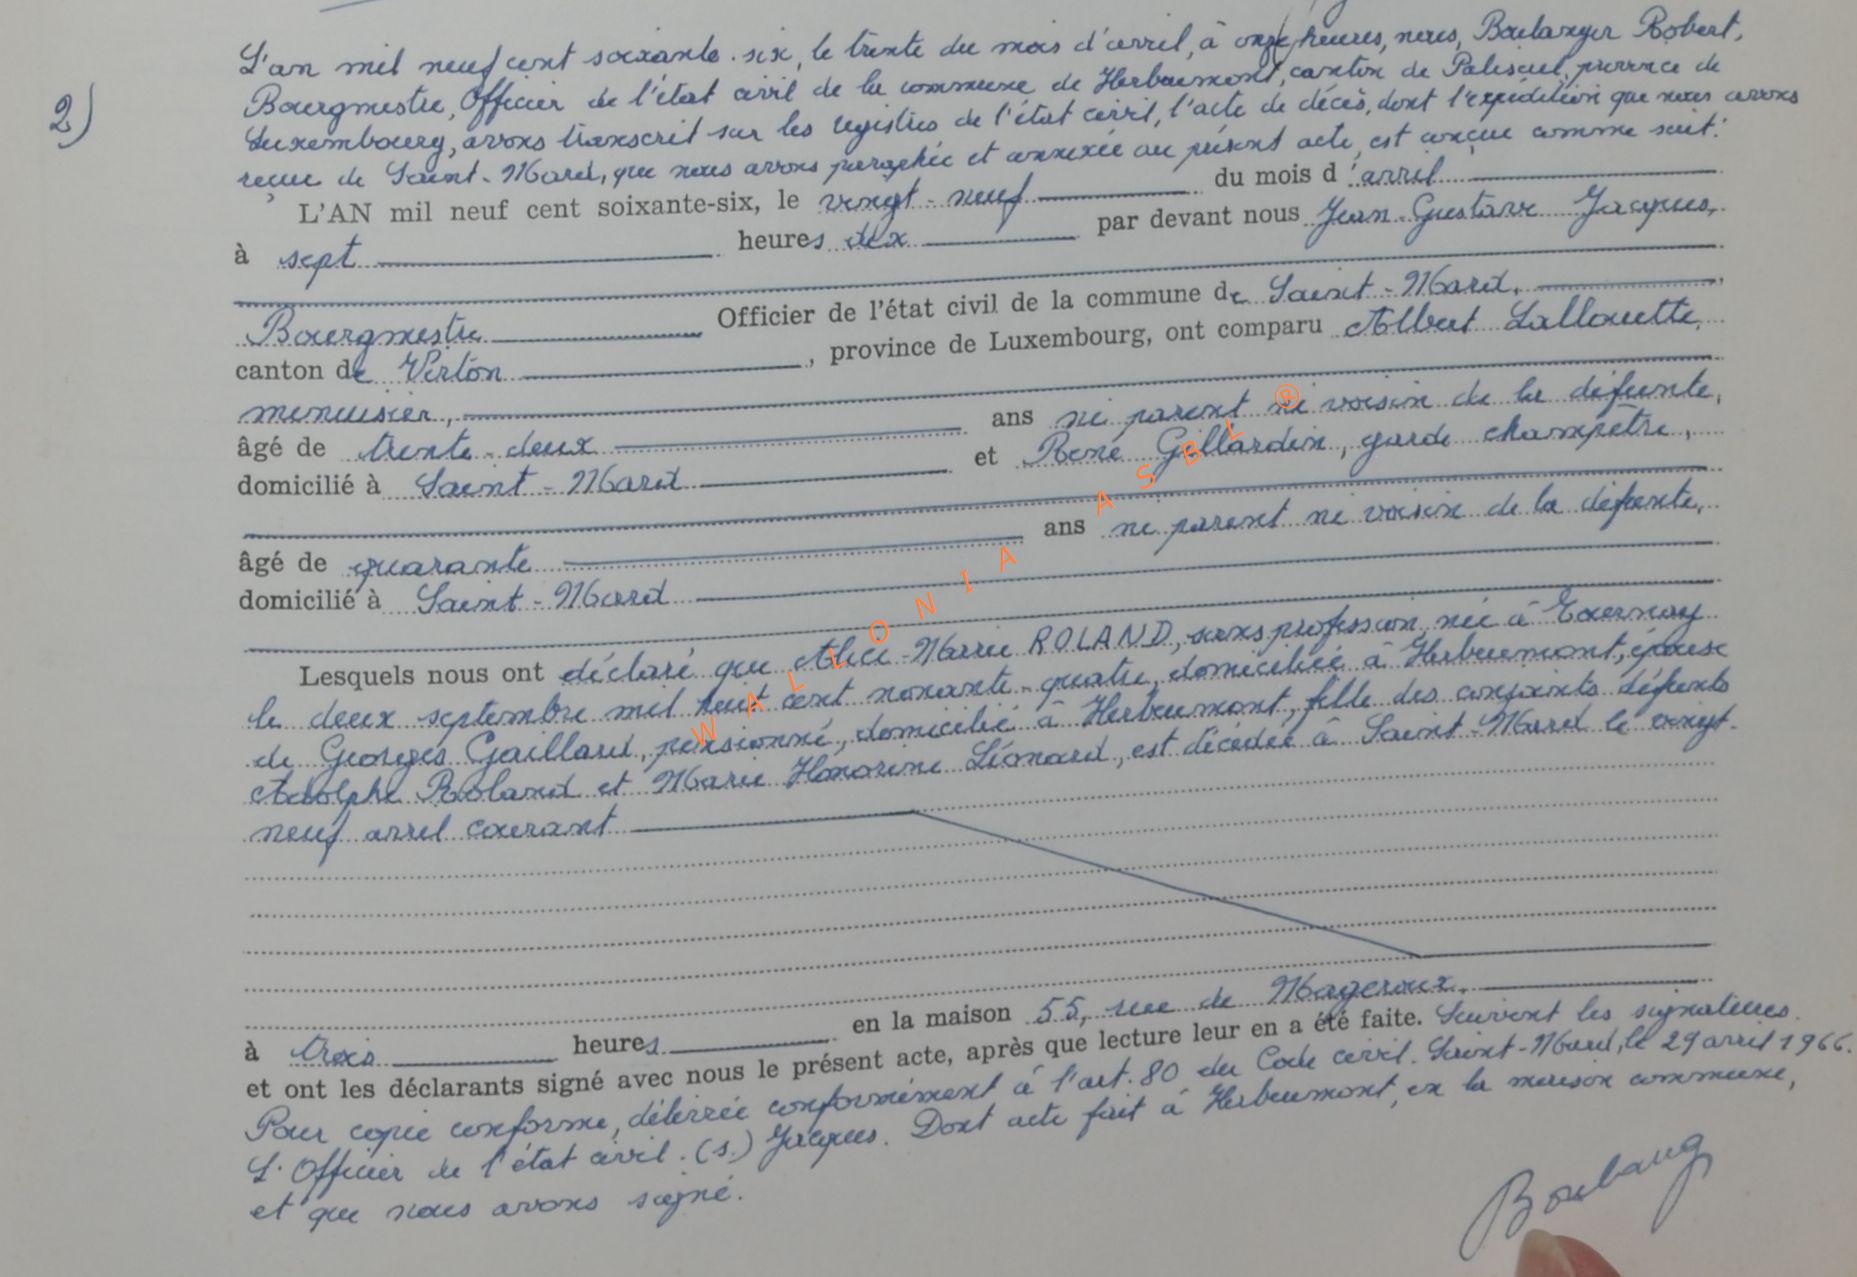 2)
L'an mil neuf cent soixante-six, le trente du mois d'avril, à onze heures, nous, Boulanger Robert,
Bourgmestre, Officier de l'état civil de la commune de Herbeumont, canton de Paliseul, province de
Luxembourg, avons transcrit sur les registres de l'état civil, l'acte de décès, dont l'expédition que nous avons
reçue de Saint-Mard, que nous avons paraphée et annexée au présent acte, est conçue comme suit:
L'AN mil neuf cent soixante-six, le vingt-neuf du mois d'avril
à sept heures dix par devant nous Jean-Gustave Jacques,
Bourgmestre Officier de l'état civil de la commune de Saint-Mard,
canton de Virton, province de Luxembourg, ont comparu Albert Lallouette,
menuisier,
âgé de trente-deux ans ni parent ni voisin de la défunte,
domicilié à Saint-Mard et René Gillardin, garde champêtre,
âgé de quarante ans ni parent ni voisin de la défunte,
domicilié à Saint-Mard
Lesquels nous ont déclaré que Alice-Marie ROLAND, sans profession, née à Tournay
le deux septembre mil huit cent nonante-quatre, domiciliée à Herbeumont, épouse
de Georges Gaillard, pensionné, domicilié à Herbeumont, fille des conjoints défunts
Adolphe Roland et Marie Honorine Léonard, est décédée à Saint-Mard le vingt-
neuf avril courant
à trois heures en la maison 55, rue de Mageroux.
et ont les déclarants signé avec nous le présent acte, après que lecture leur en a été faite. Suivent les signatures.
Pour copie conforme, délivrée conformément à l'art. 80 du Code civil. Saint-Mard, le 29 avril 1966.
L'Officier de l'état civil. (s.) Jacques. Dont acte fait à Herbeumont, en la maison commune,
et que nous avons signé.
Boulang
WALLONIA ASBL ®